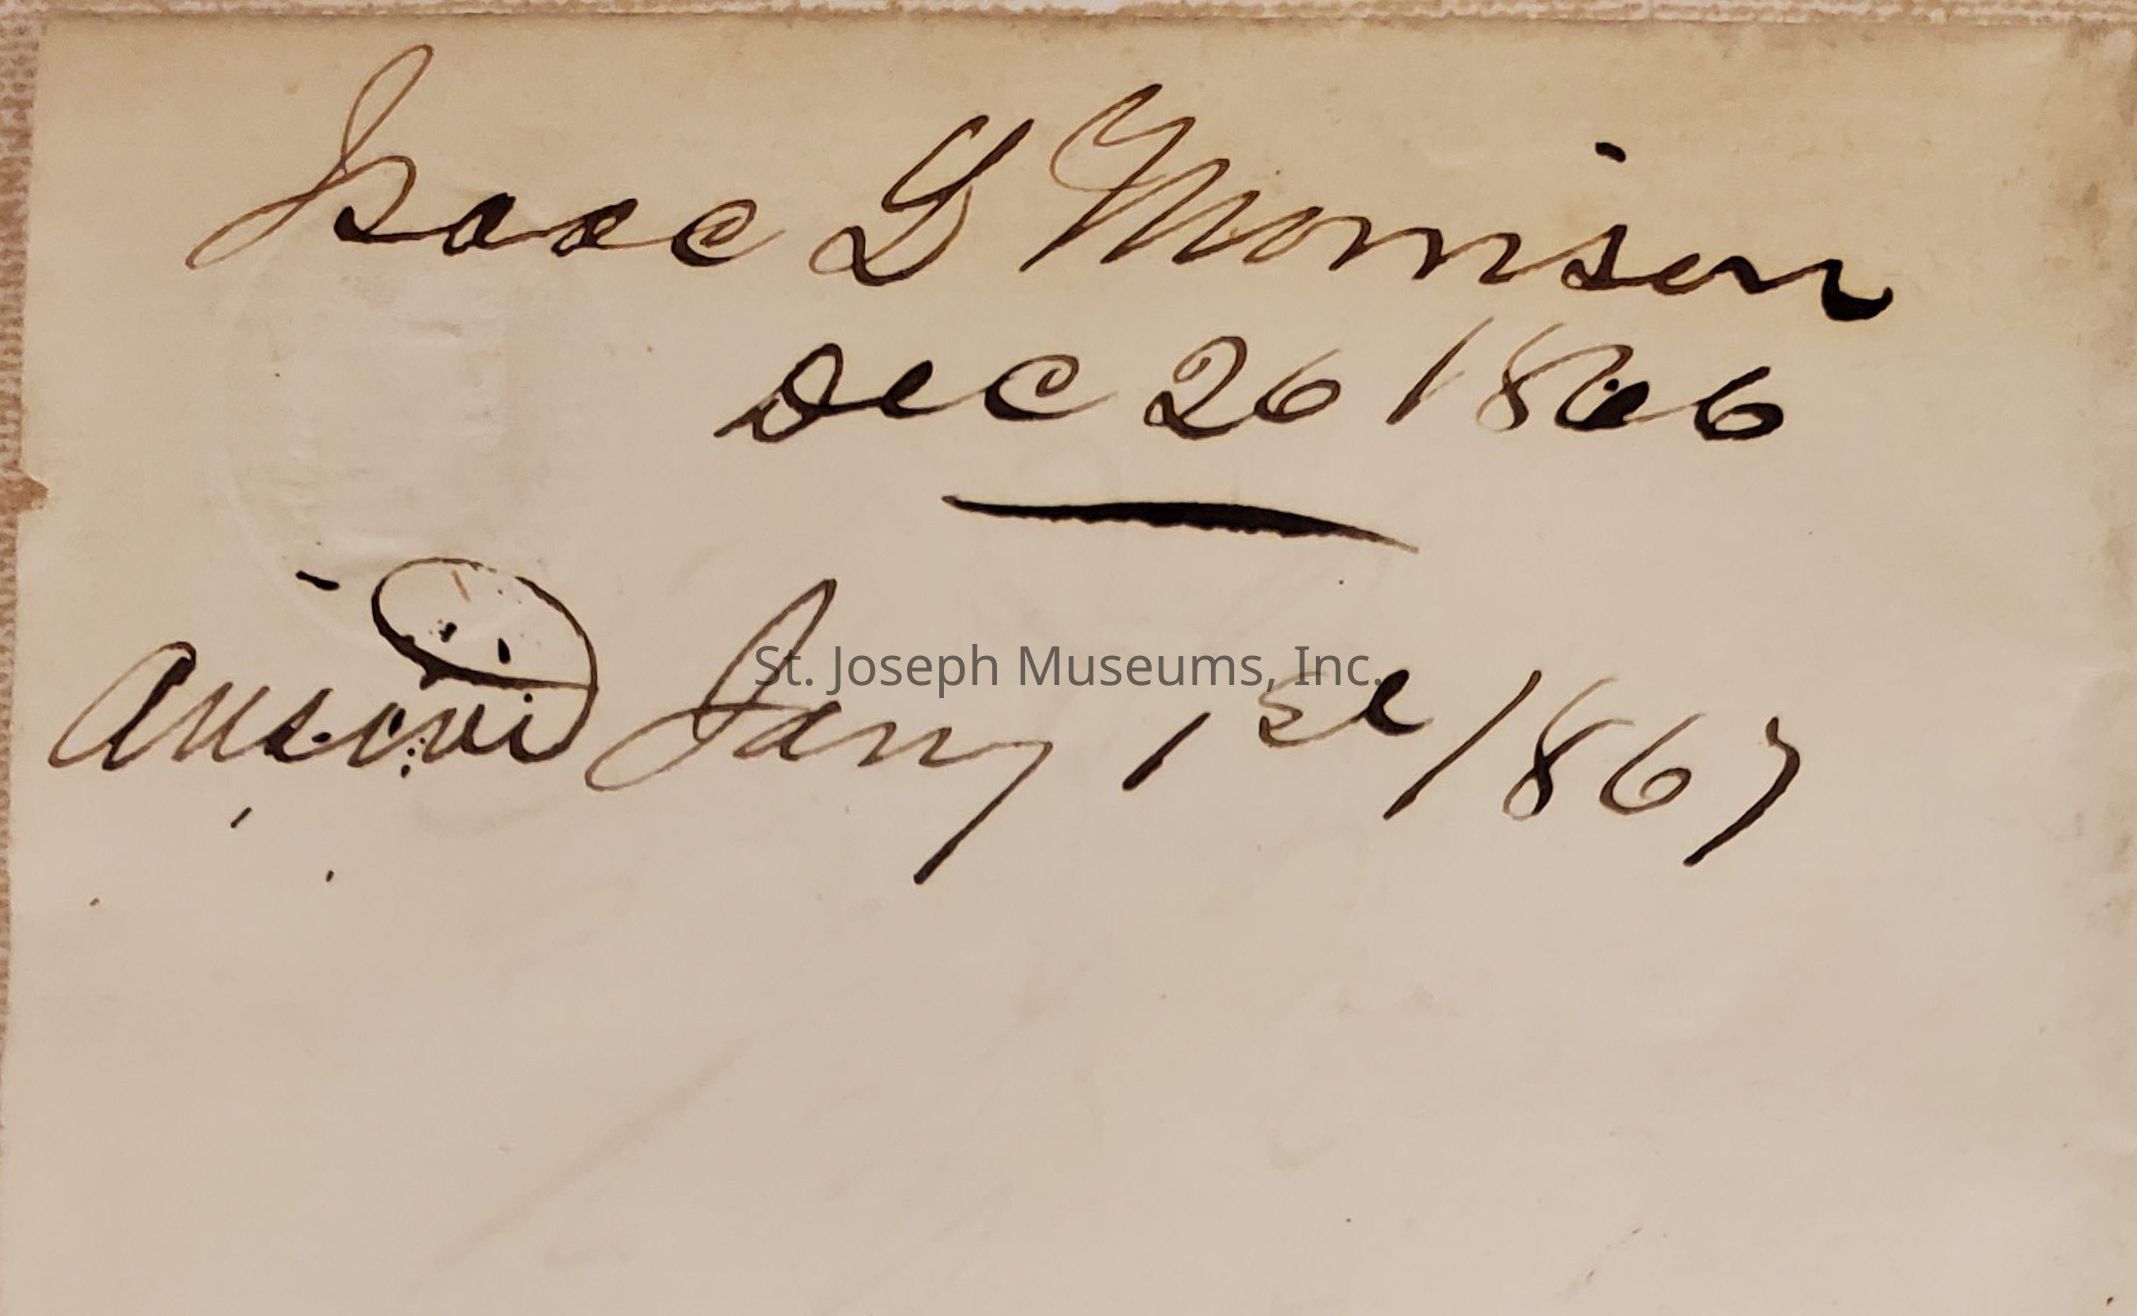 Isaac G Morrison
Dec 26 1866
Answd Jany 1st 1867
St. Joseph Museums, Inc.